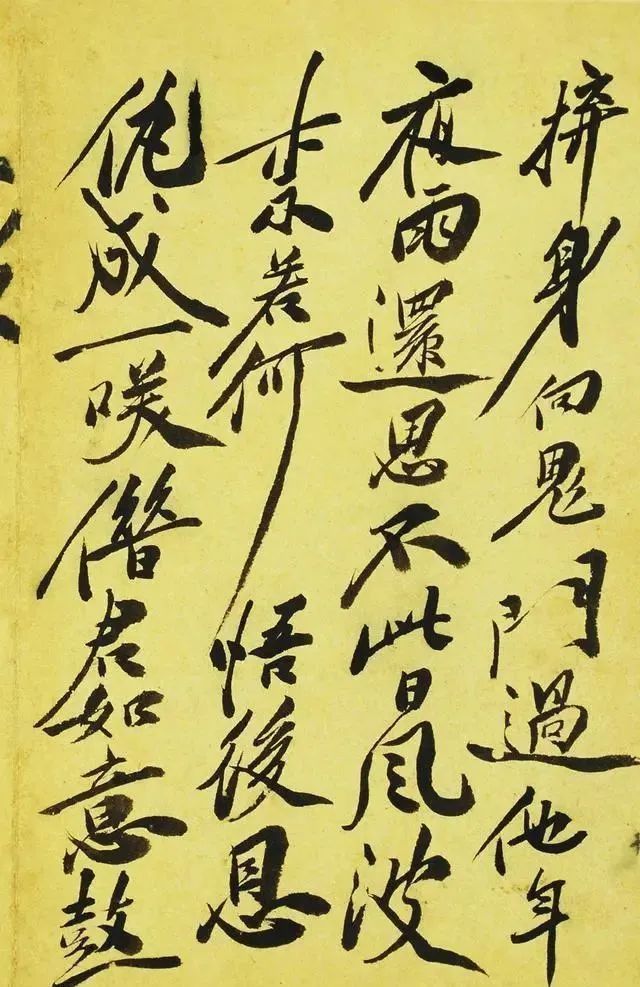 拚身向鬼門過他年
夜雨還思不此日風波
柰若何 悟後恩
仇成一咲僭君如意鼓